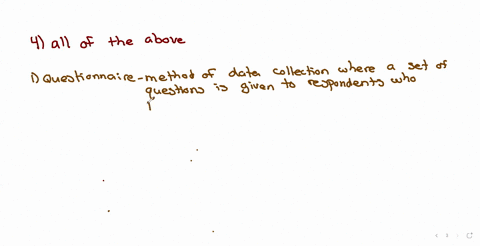 4) all of the above
1) Questionnaire - method of data collection where a set of
questions is given to respondents who